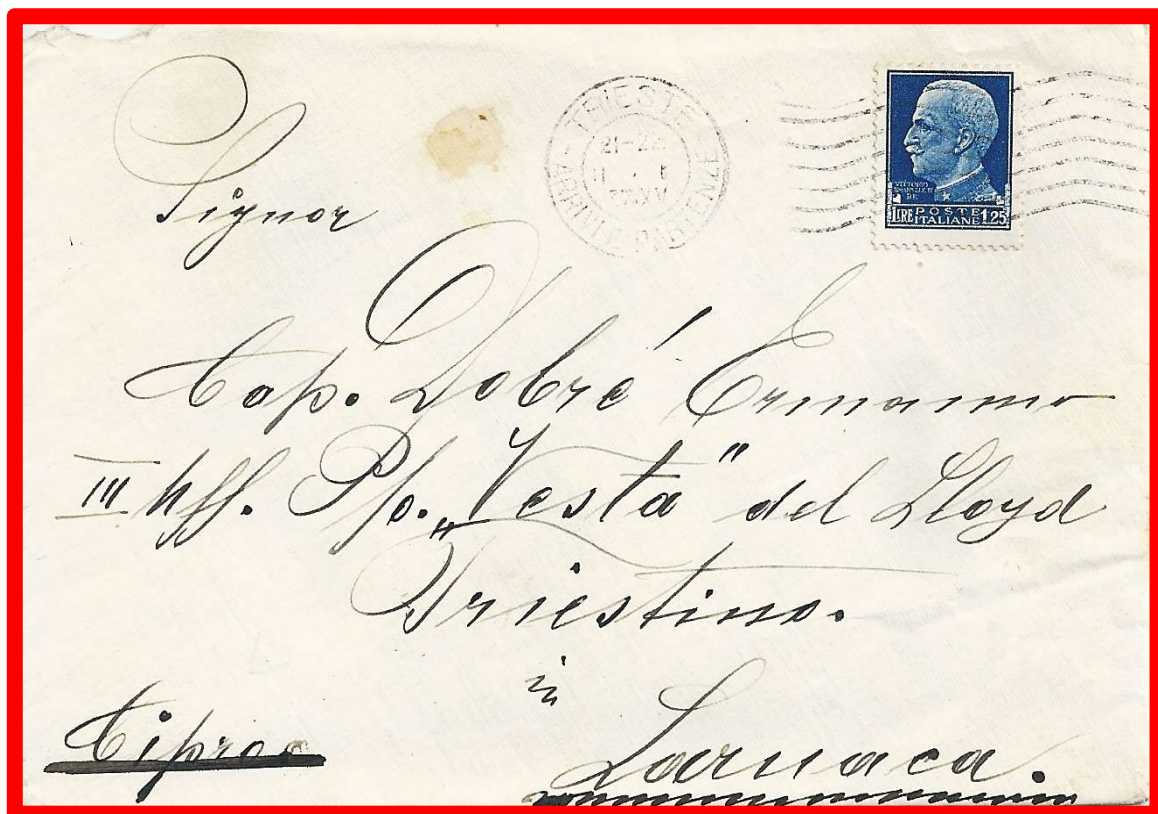 TRIESTE
21-22
ARRIVI E PARTENZE
VITTORIO
EMANUELE III
RE
POSTE
LIRE ITALIANE 1.25
Signor
Cap. Dobré Ermanno
III Uff. P/o. „Vesta" del Lloyd
Triestino.
in
Cipro
Larnaca.